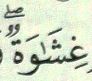 غِشَٰوَةٞۖ